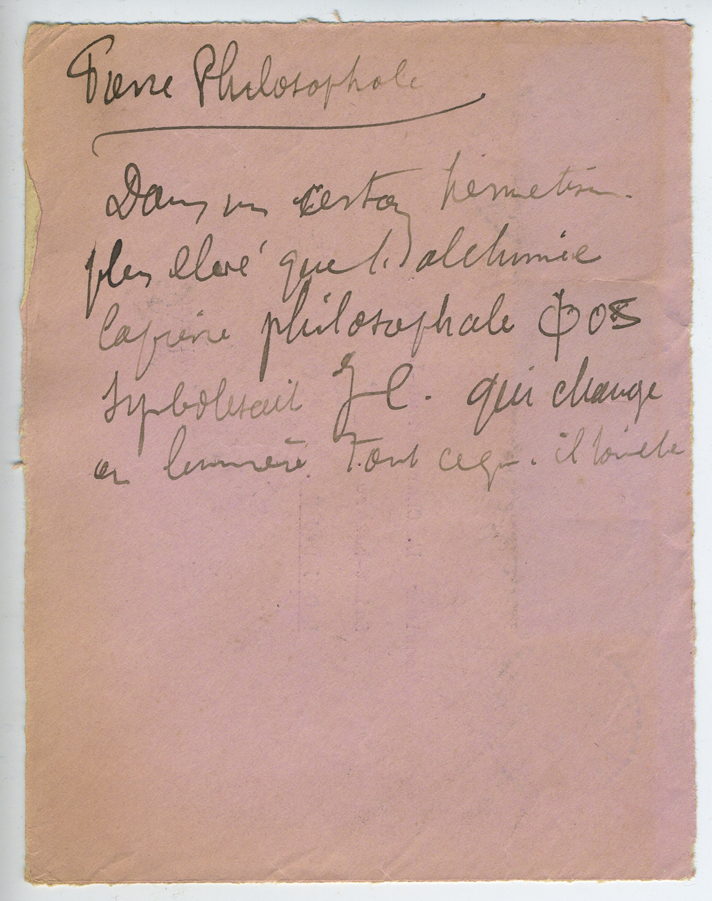 Pierre Philosophale
Dans un certain hermetism.
plus élevé que l'alchimie
la pierre philosophale Φos
symbolisait J C. qui change
en lumière Tout ce qu. il touche